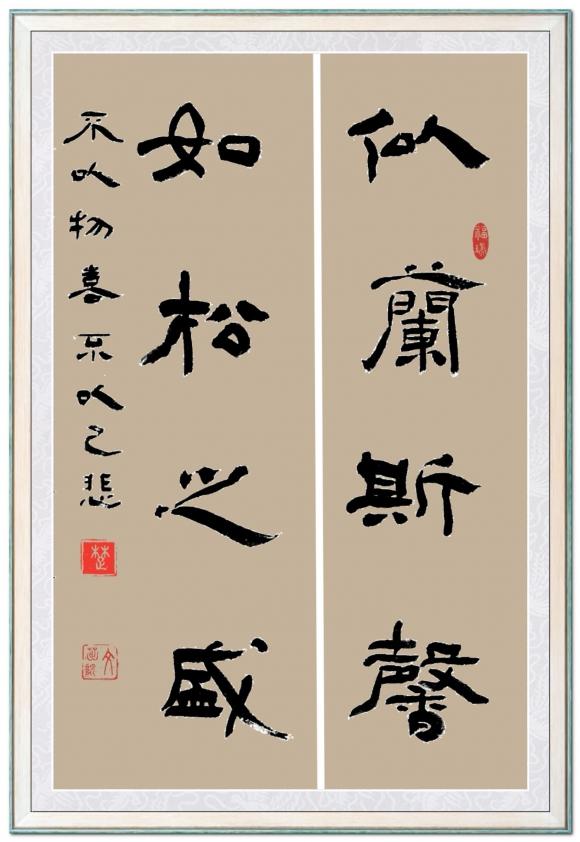 似蘭斯馨
如松之盛
不以物喜不以己悲
楚